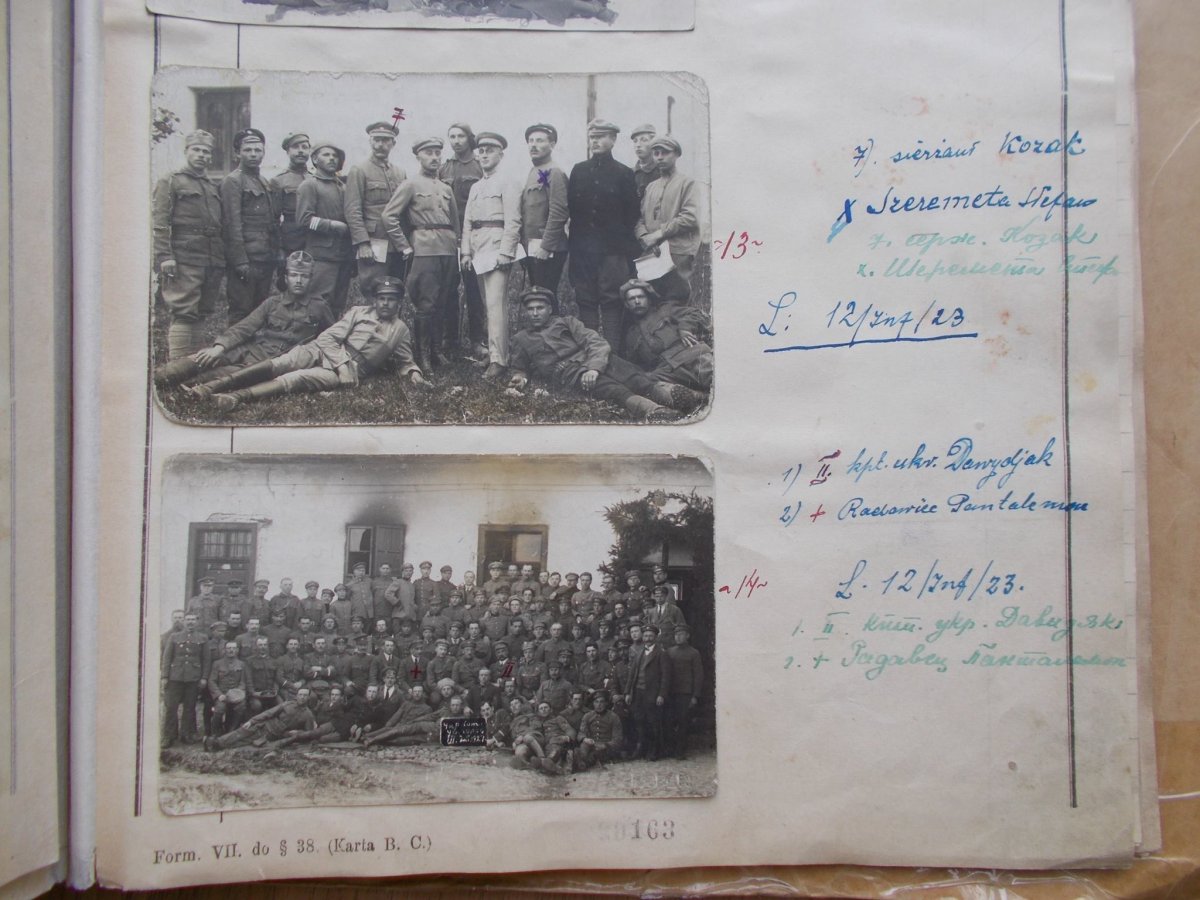 7
x
~13~
7). sierżant Kozak
x Szeremeta Stefan
7. серж. Козак
x. Шеремета Стеф
L: 12/Inf/23
1) II. kpt. ukr. Dawydjak
2) + Radawiec Pantalemon
~14~
L. 12/Inf/23.
1. II. кпт. укр. Давидяк
2. + Радавец Панталемон
+
II
163
Form. VII. do § 38. (Karta B. C.)